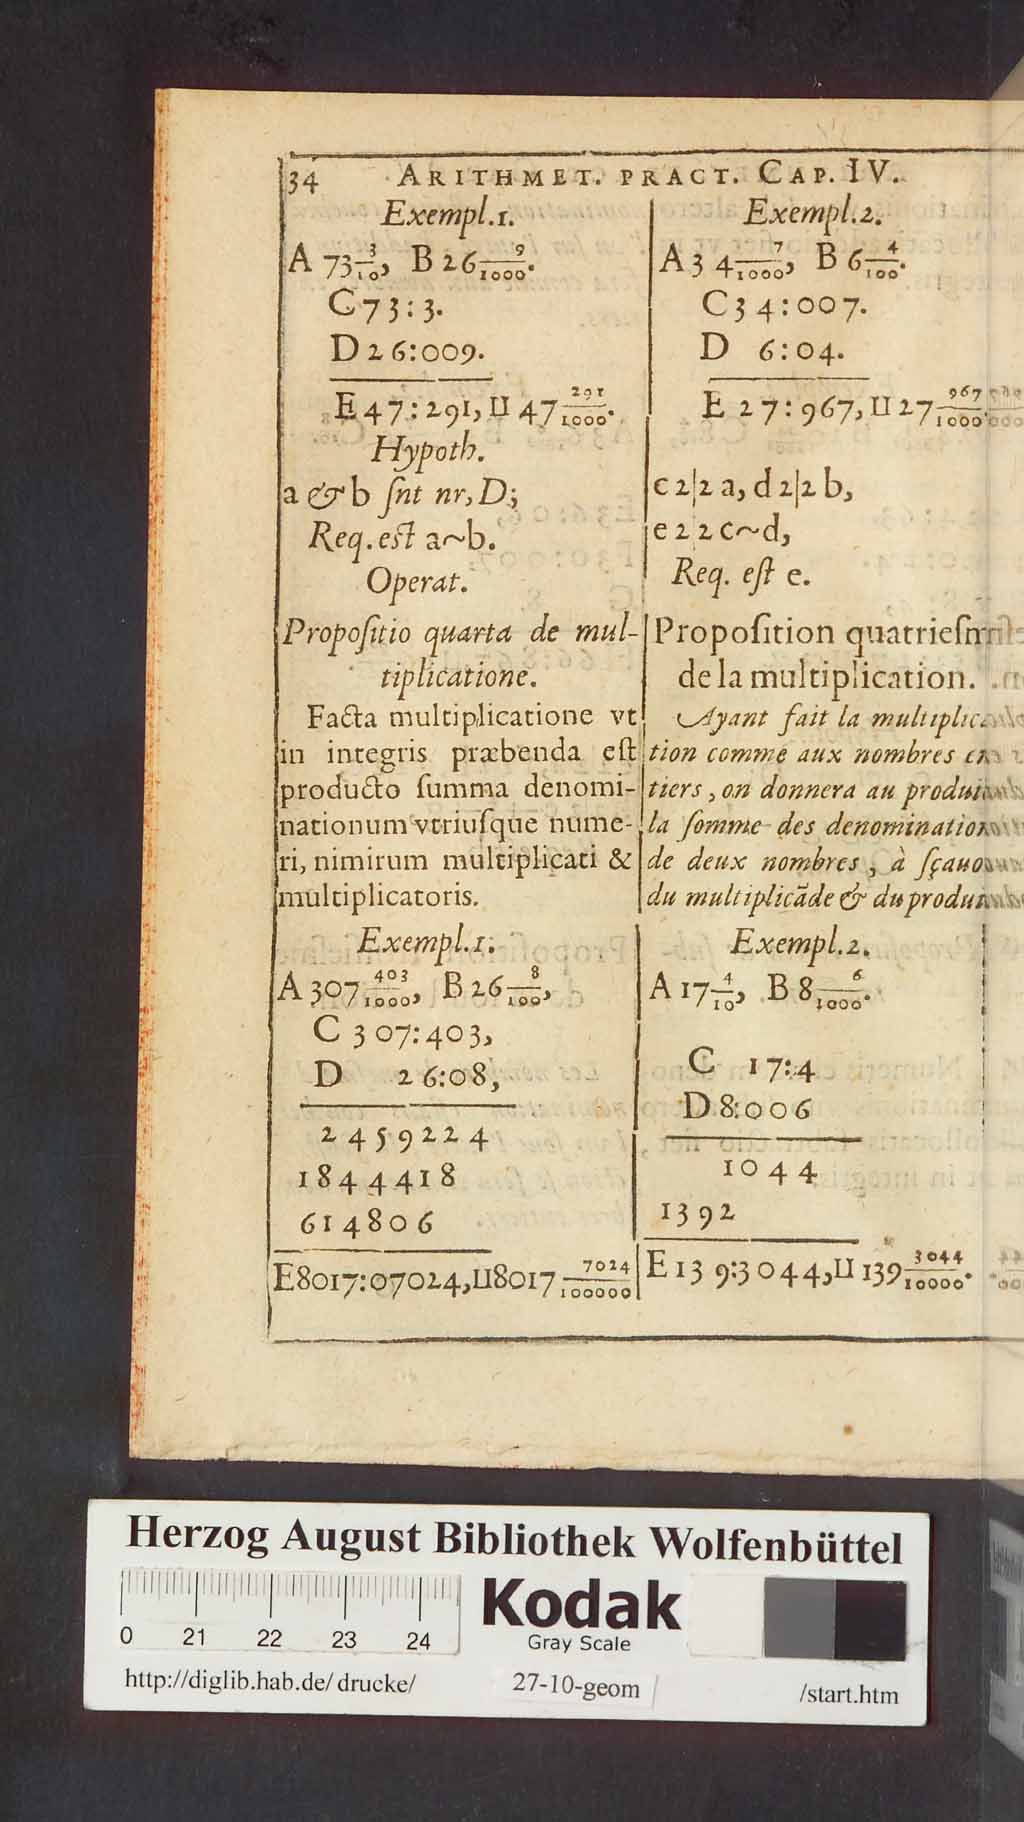 34 ARITHMET. PRACT. CAP. IV.
Exempl.1.
A 73 3/10, B 26 9/1000.
C 73:3.
D 26:009.
E 47:291, 𝈪 47 291/1000.
Hypoth.
a & b ſnt nr, D;
Req. eſt a~b.
Operat.
Exempl.2.
A 34 7/1000, B 6 4/100.
C 34:007.
D 6:04.
E 27:967, II 27 967/1000.
c 2|2 a, d 2|2 b,
e 2 2 c~d,
Req. eſt e.
Propoſitio quarta de mul-
tiplicatione.
Facta multiplicatione vt
in integris præbenda eſt
producto ſumma denomi-
nationum vtriuſque nume-
ri, nimirum multiplicati &
multiplicatoris.
Propoſition quatrieſm
de la multiplication.
Ayant fait la multiplica-
tion comme aux nombres en
tiers, on donnera au produi
la ſomme des denomination
de deux nombres, à ſçauo
du multiplicãde & du produi
Exempl.1.
A 307 403/1000, B 26 8/100,
C 307:403,
D 26:08,
2459224
1844418
614806
E8017:07024, II 8017 7024/100000
Exempl.2.
A 17 4/10, B 8 6/1000.
C 17:4
D 8:006
1044
1392
E 139:3044, II 139 3044/10000.
Herzog August Bibliothek Wolfenbüttel
0 21 22 23 24
Kodak
Gray Scale
http://diglib.hab.de/drucke/ 27-10-geom /start.htm